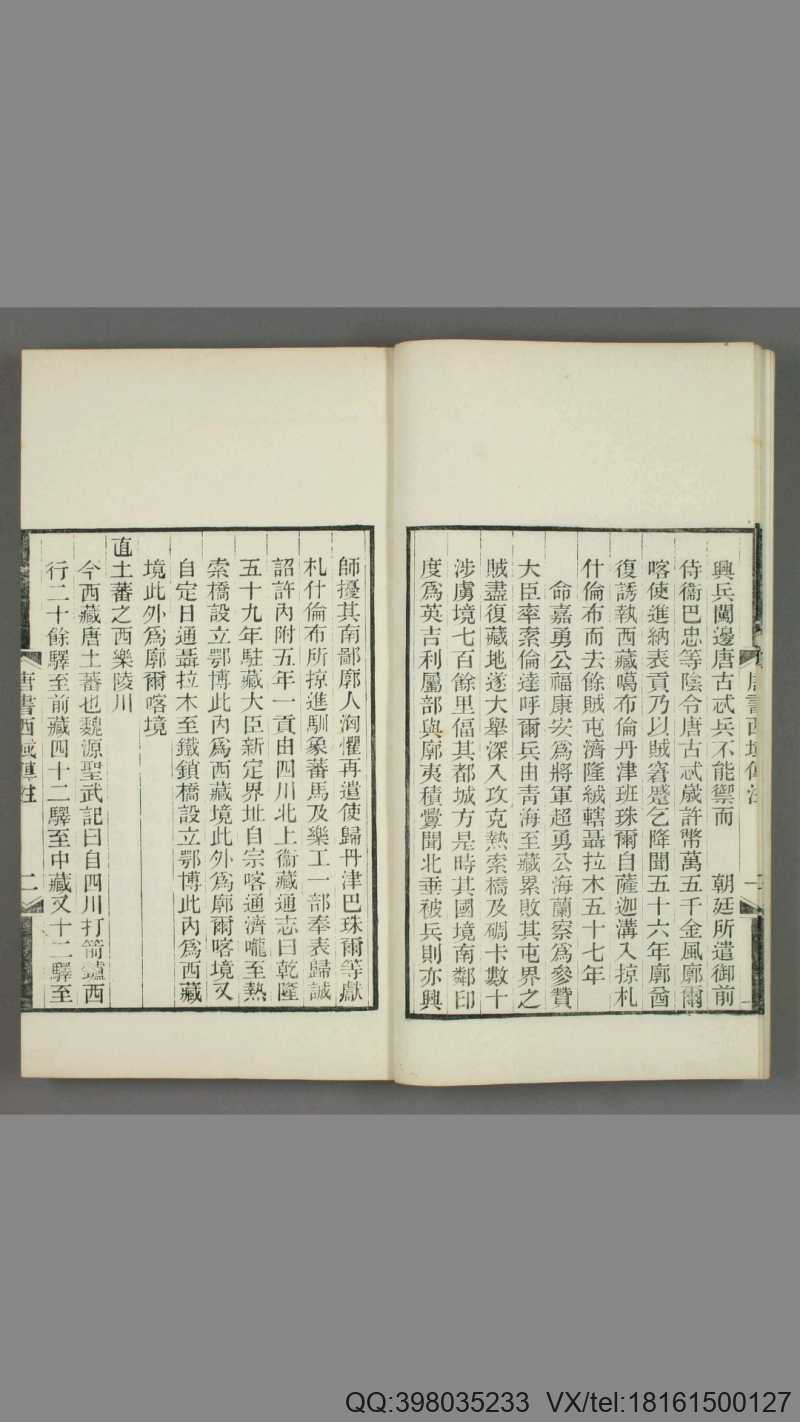 興兵闖邊唐古忒兵不能禦而　朝廷所遣御前
侍衞巴忠等陰令唐古忒歲許幣萬五千金風廓爾
喀使進納表貢乃以賊窘蹙乞降聞五十六年廓酋
復誘執西藏噶布倫丹津班珠爾自薩迦溝入掠札
什倫布而去餘賊屯濟隆絨轄聶拉木五十七年
命嘉勇公福康安爲將軍超勇公海蘭察爲參贊
大臣率索倫達呼爾兵由青海至藏累敗其屯界之
賊盡復藏地遂大舉深入攻克熱索橋及碉卡數十
涉虜境七百餘里偪其都城方是時其國境南鄰印
度爲英吉利屬部與廓夷積釁聞北垂被兵則亦興
唐書西域傳注
師擾其南鄙廓人洶懼再遣使歸丹津巴珠爾等獻
札什倫布所掠進馴象蕃馬及樂工一部奉表歸誠
詔許內附五年一貢由四川北上衞藏通志曰乾隆
五十九年駐藏大臣新定界址自宗喀通濟嚨至熱
索橋設立鄂博此內爲西藏境此外爲廓爾喀境又
自定日通聶拉木至鐵鎖橋設立鄂博此內爲西藏
境此外爲廓爾喀境
直土蕃之西樂陵川
今西藏唐土蕃也魏源聖武記曰自四川打箭鑪西
行二十餘驛至前藏四十二驛至中藏又十二驛至
唐書西域傳注
二
QQ:398035233 VX/tel:18161500127